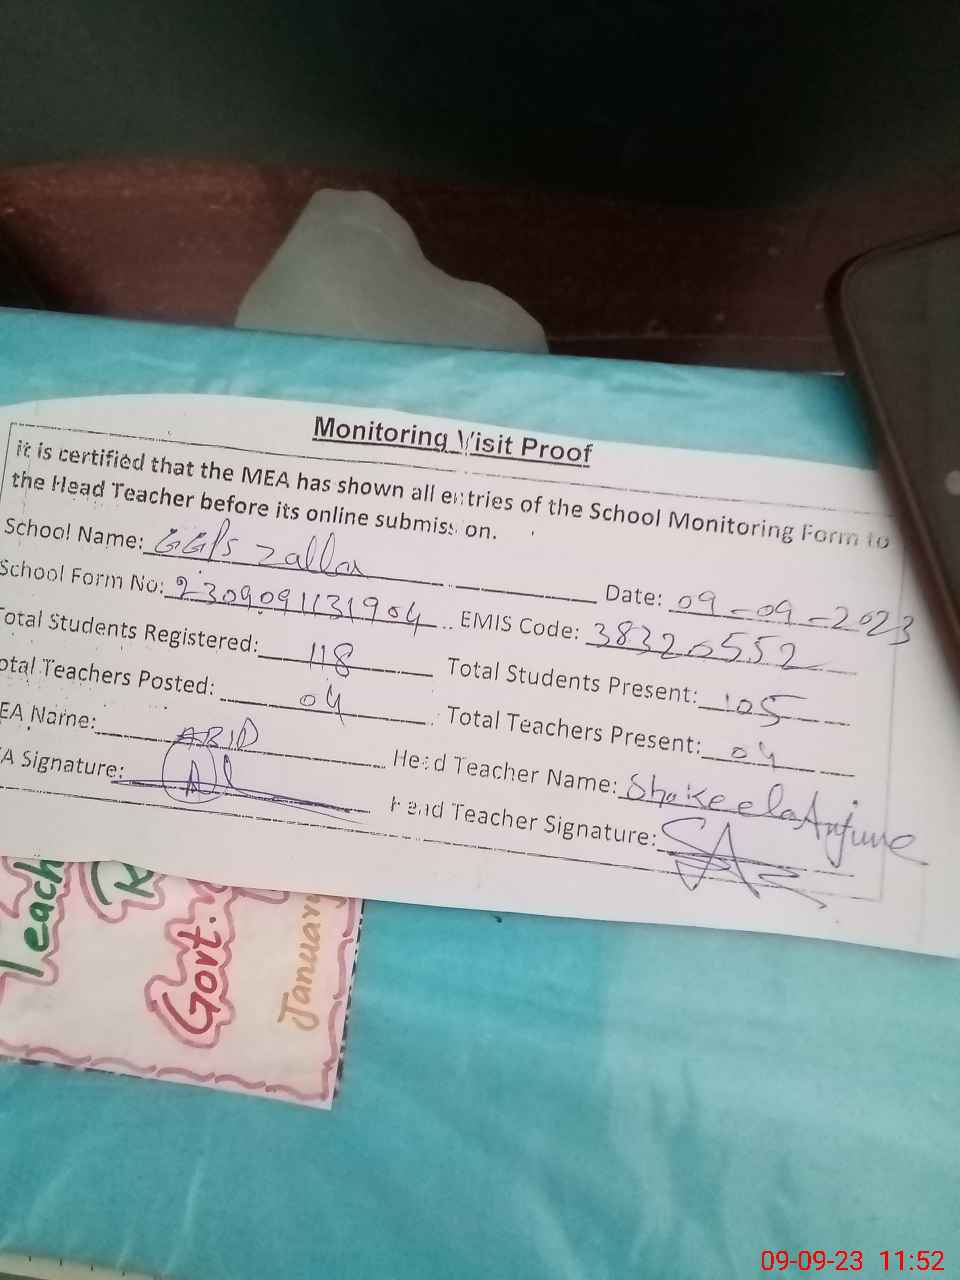 Monitoring Visit Proof
it is certified that the MEA has shown all entries of the School Monitoring Form to
the Head Teacher before its online submission.
School Name: GGPS Zallar Date: 09-09-2023
School Form No: 2309091131904 EMIS Code: 38320552
Total Students Registered: 118 Total Students Present: 105
otal Teachers Posted: 04 Total Teachers Present: 04
EA Name: ABID Head Teacher Name: Shakeela Anjume
A Signature: Head Teacher Signature: SA
Teach
Govt.
January
09-09-23 11:52